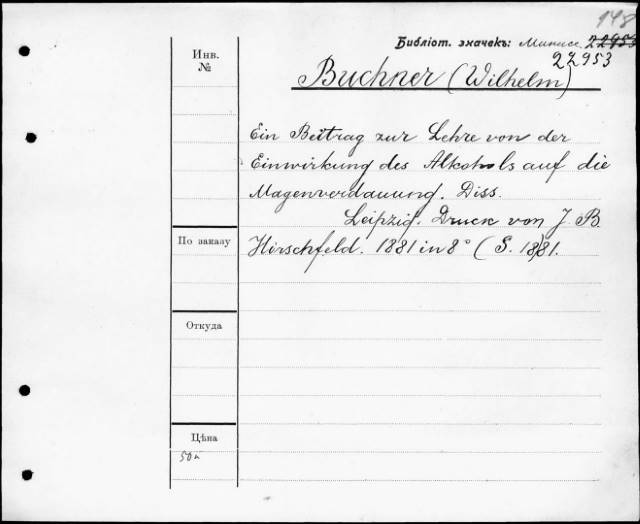 148
Библіот. значекъ: 22953
22953
Инв.
№
Buchner (Wilhelm)
Ein Beitrag zur Lehre von der
Einwirkung des Alkohols auf die
Magenverdauung. Diss.
Leipzig. Druck von J. B.
Hirschfeld. 1881 in 8° (S. 18)81.
По заказу
Откуда
Цѣна
50к